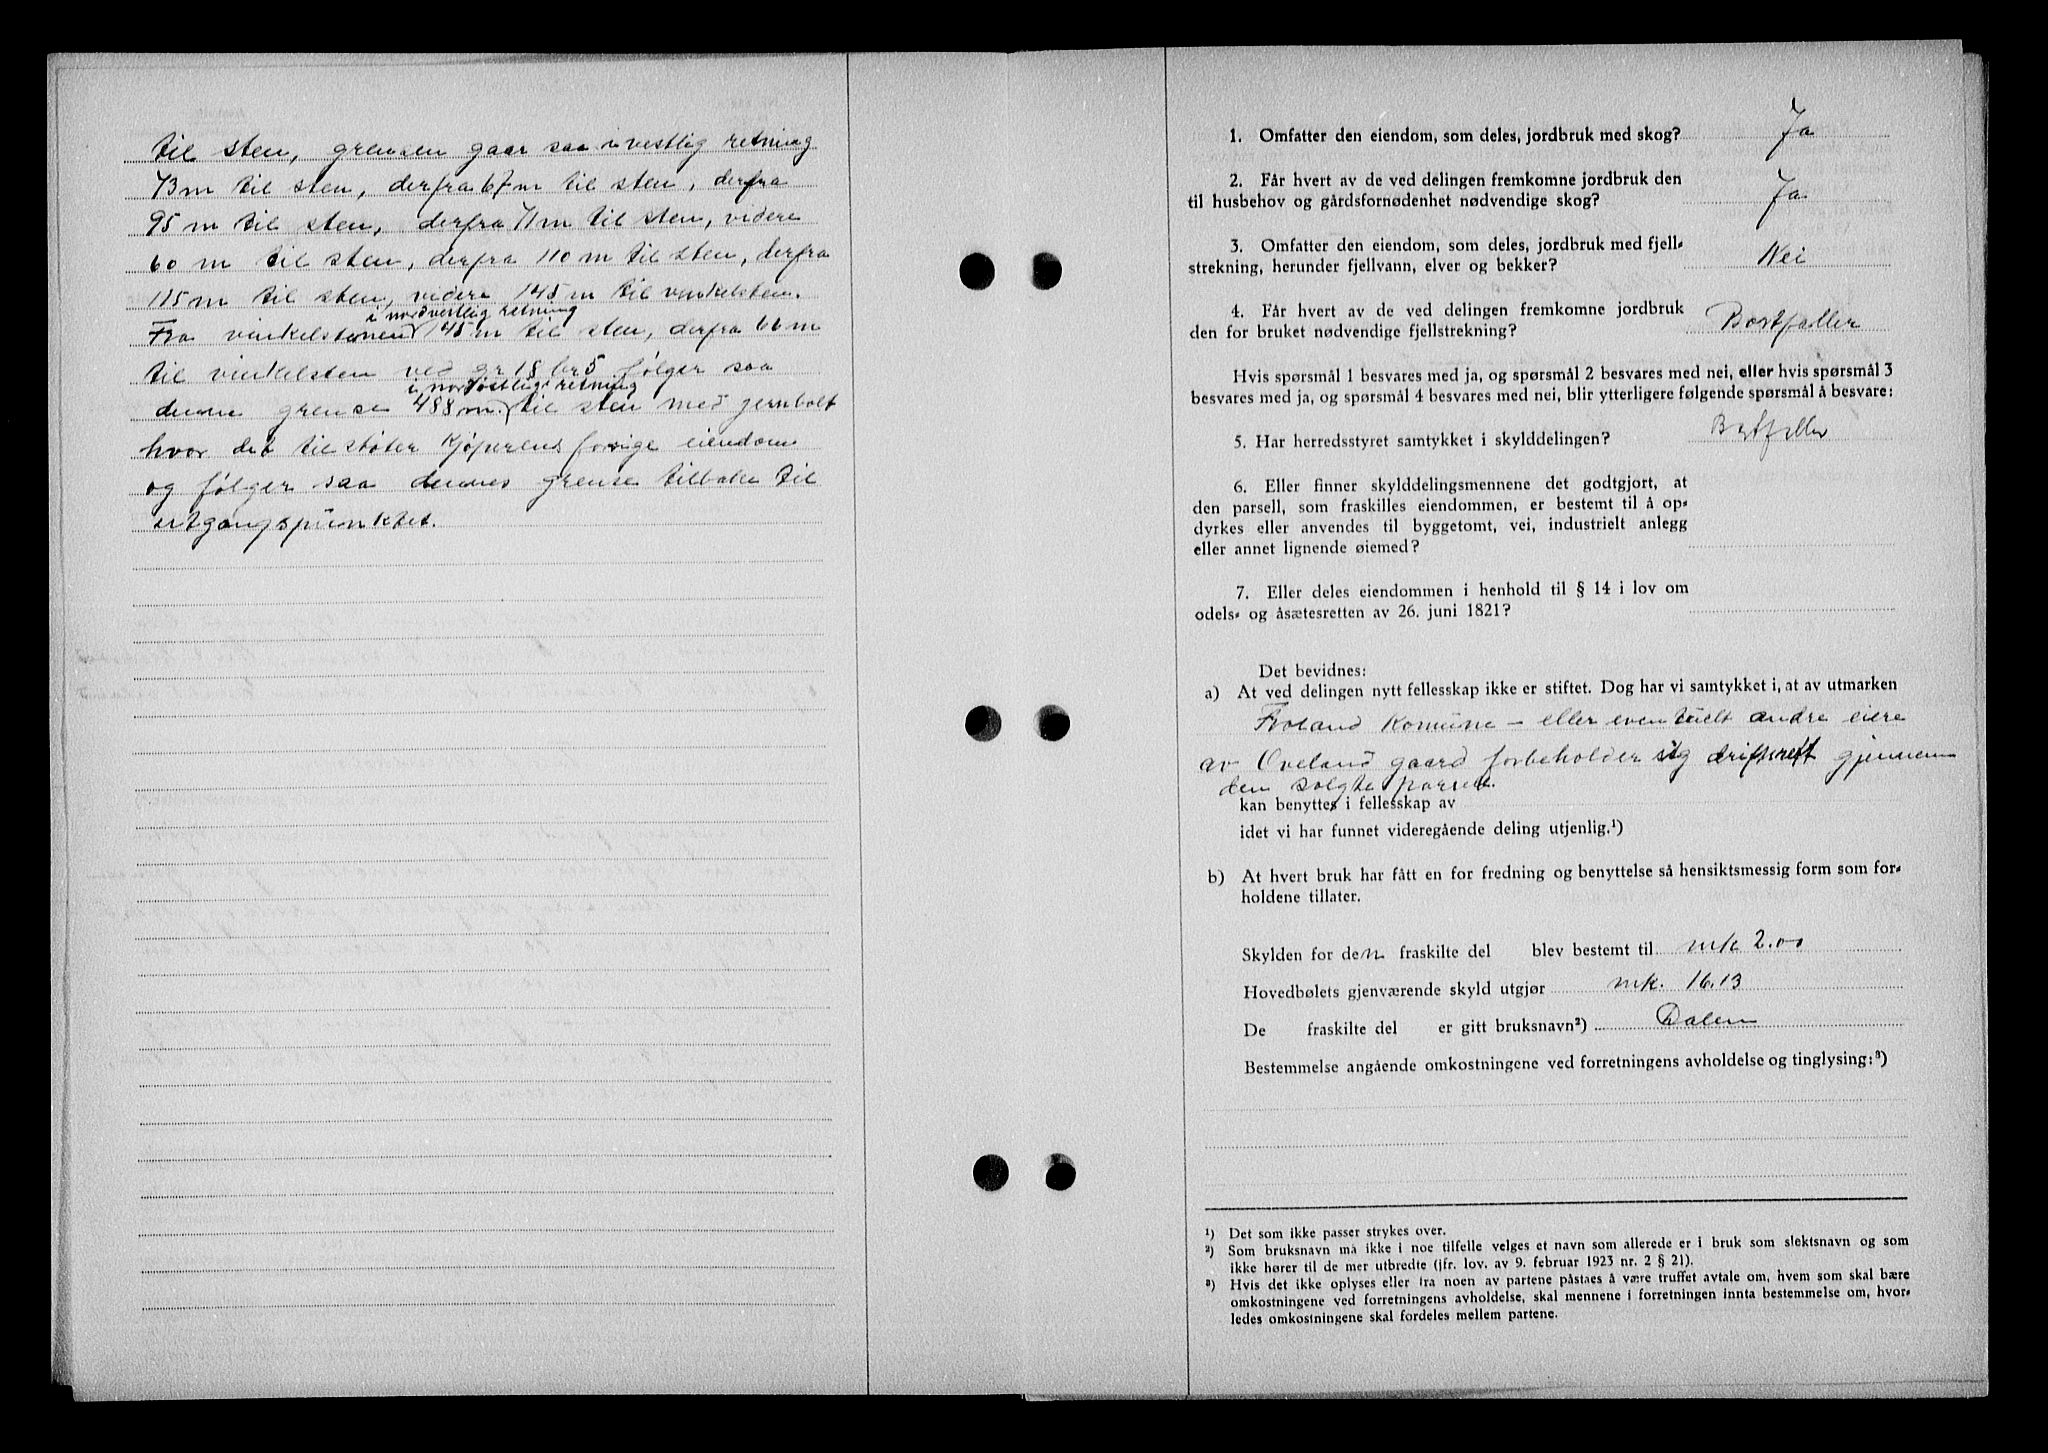 til sten, grensen gaar saa i vestlig retning
73 m til sten, derfra 67 m til sten, derfra
95 m til sten, derfra 71 m til sten, videre
60 m til sten, derfra 110 m til sten, derfra
115 m til sten, videre 145 m til vinkelsten.
i nordvestlig retning
Fra vinkelstenen 145 m til sten, derfra 66 m
til vinkelsten ved gr 18 br 5 følger saa
i nordøstlig retning
denne grense 488 m. til sten med jernbolt
hvor det tilstøter kjøperens forrige eiendom
og følger saa dennes grense tilbake til
utgangspunktet.
1. Omfatter den eiendom, som deles, jordbruk med skog? Ja
2. Får hvert av de ved delingen fremkomne jordbruk den
til husbehov og gårdsfornødenhet nødvendige skog? Ja
3. Omfatter den eiendom, som deles, jordbruk med fjell-
strekning, herunder fjellvann, elver og bekker? Nei
4. Får hvert av de ved delingen fremkomne jordbruk
den for bruket nødvendige fjellstrekning? Bortfaller
Hvis spørsmål 1 besvares med ja, og spørsmål 2 besvares med nei, eller hvis spørsmål 3
besvares med ja, og spørsmål 4 besvares med nei, blir ytterligere følgende spørsmål å besvare:
5. Har herredsstyret samtykket i skylddelingen? Bortfaller
6. Eller finner skylddelingsmennene det godtgjort, at
den parsell, som fraskilles eiendommen, er bestemt til å op-
dyrkes eller anvendes til byggetomt, vei, industrielt anlegg
eller annet lignende øiemed?
7. Eller deles eiendommen i henhold til § 14 i lov om
odels- og åsætesretten av 26. juni 1821?
Det bevidnes:
a) At ved delingen nytt fellesskap ikke er stiftet. Dog har vi samtykket i, at av utmarken
Froland Komune – eller eventuelt andre eiere
av Oveland gaard forbeholder sig driftsrett gjennem
den solgte parsell.
kan benyttes i fellesskap av
idet vi har funnet videregående deling utjenlig.¹)
b) At hvert bruk har fått en for fredning og benyttelse så hensiktsmessig form som for-
holdene tillater.
Skylden for den fraskilte del blev bestemt til mk 2.00
Hovedbølets gjenværende skyld utgjør mk. 16.13
De fraskilte del er gitt bruksnavn²) Dalen
Bestemmelse angående omkostningene ved forretningens avholdelse og tinglysing:³)
¹) Det som ikke passer strykes over.
²) Som bruksnavn må ikke i noe tilfelle velges et navn som allerede er i bruk som slektsnavn og som
ikke hører til de mer utbredte (jfr. lov. av 9. februar 1923 nr. 2 § 21).
³) Hvis det ikke oplyses eller fra noen av partene påstaes å være truffet avtale om, hvem som skal bære
omkostningene ved forretningens avholdelse, skal mennene i forretningen innta bestemmelse om, hvor-
ledes omkostningene skal fordeles mellem partene.